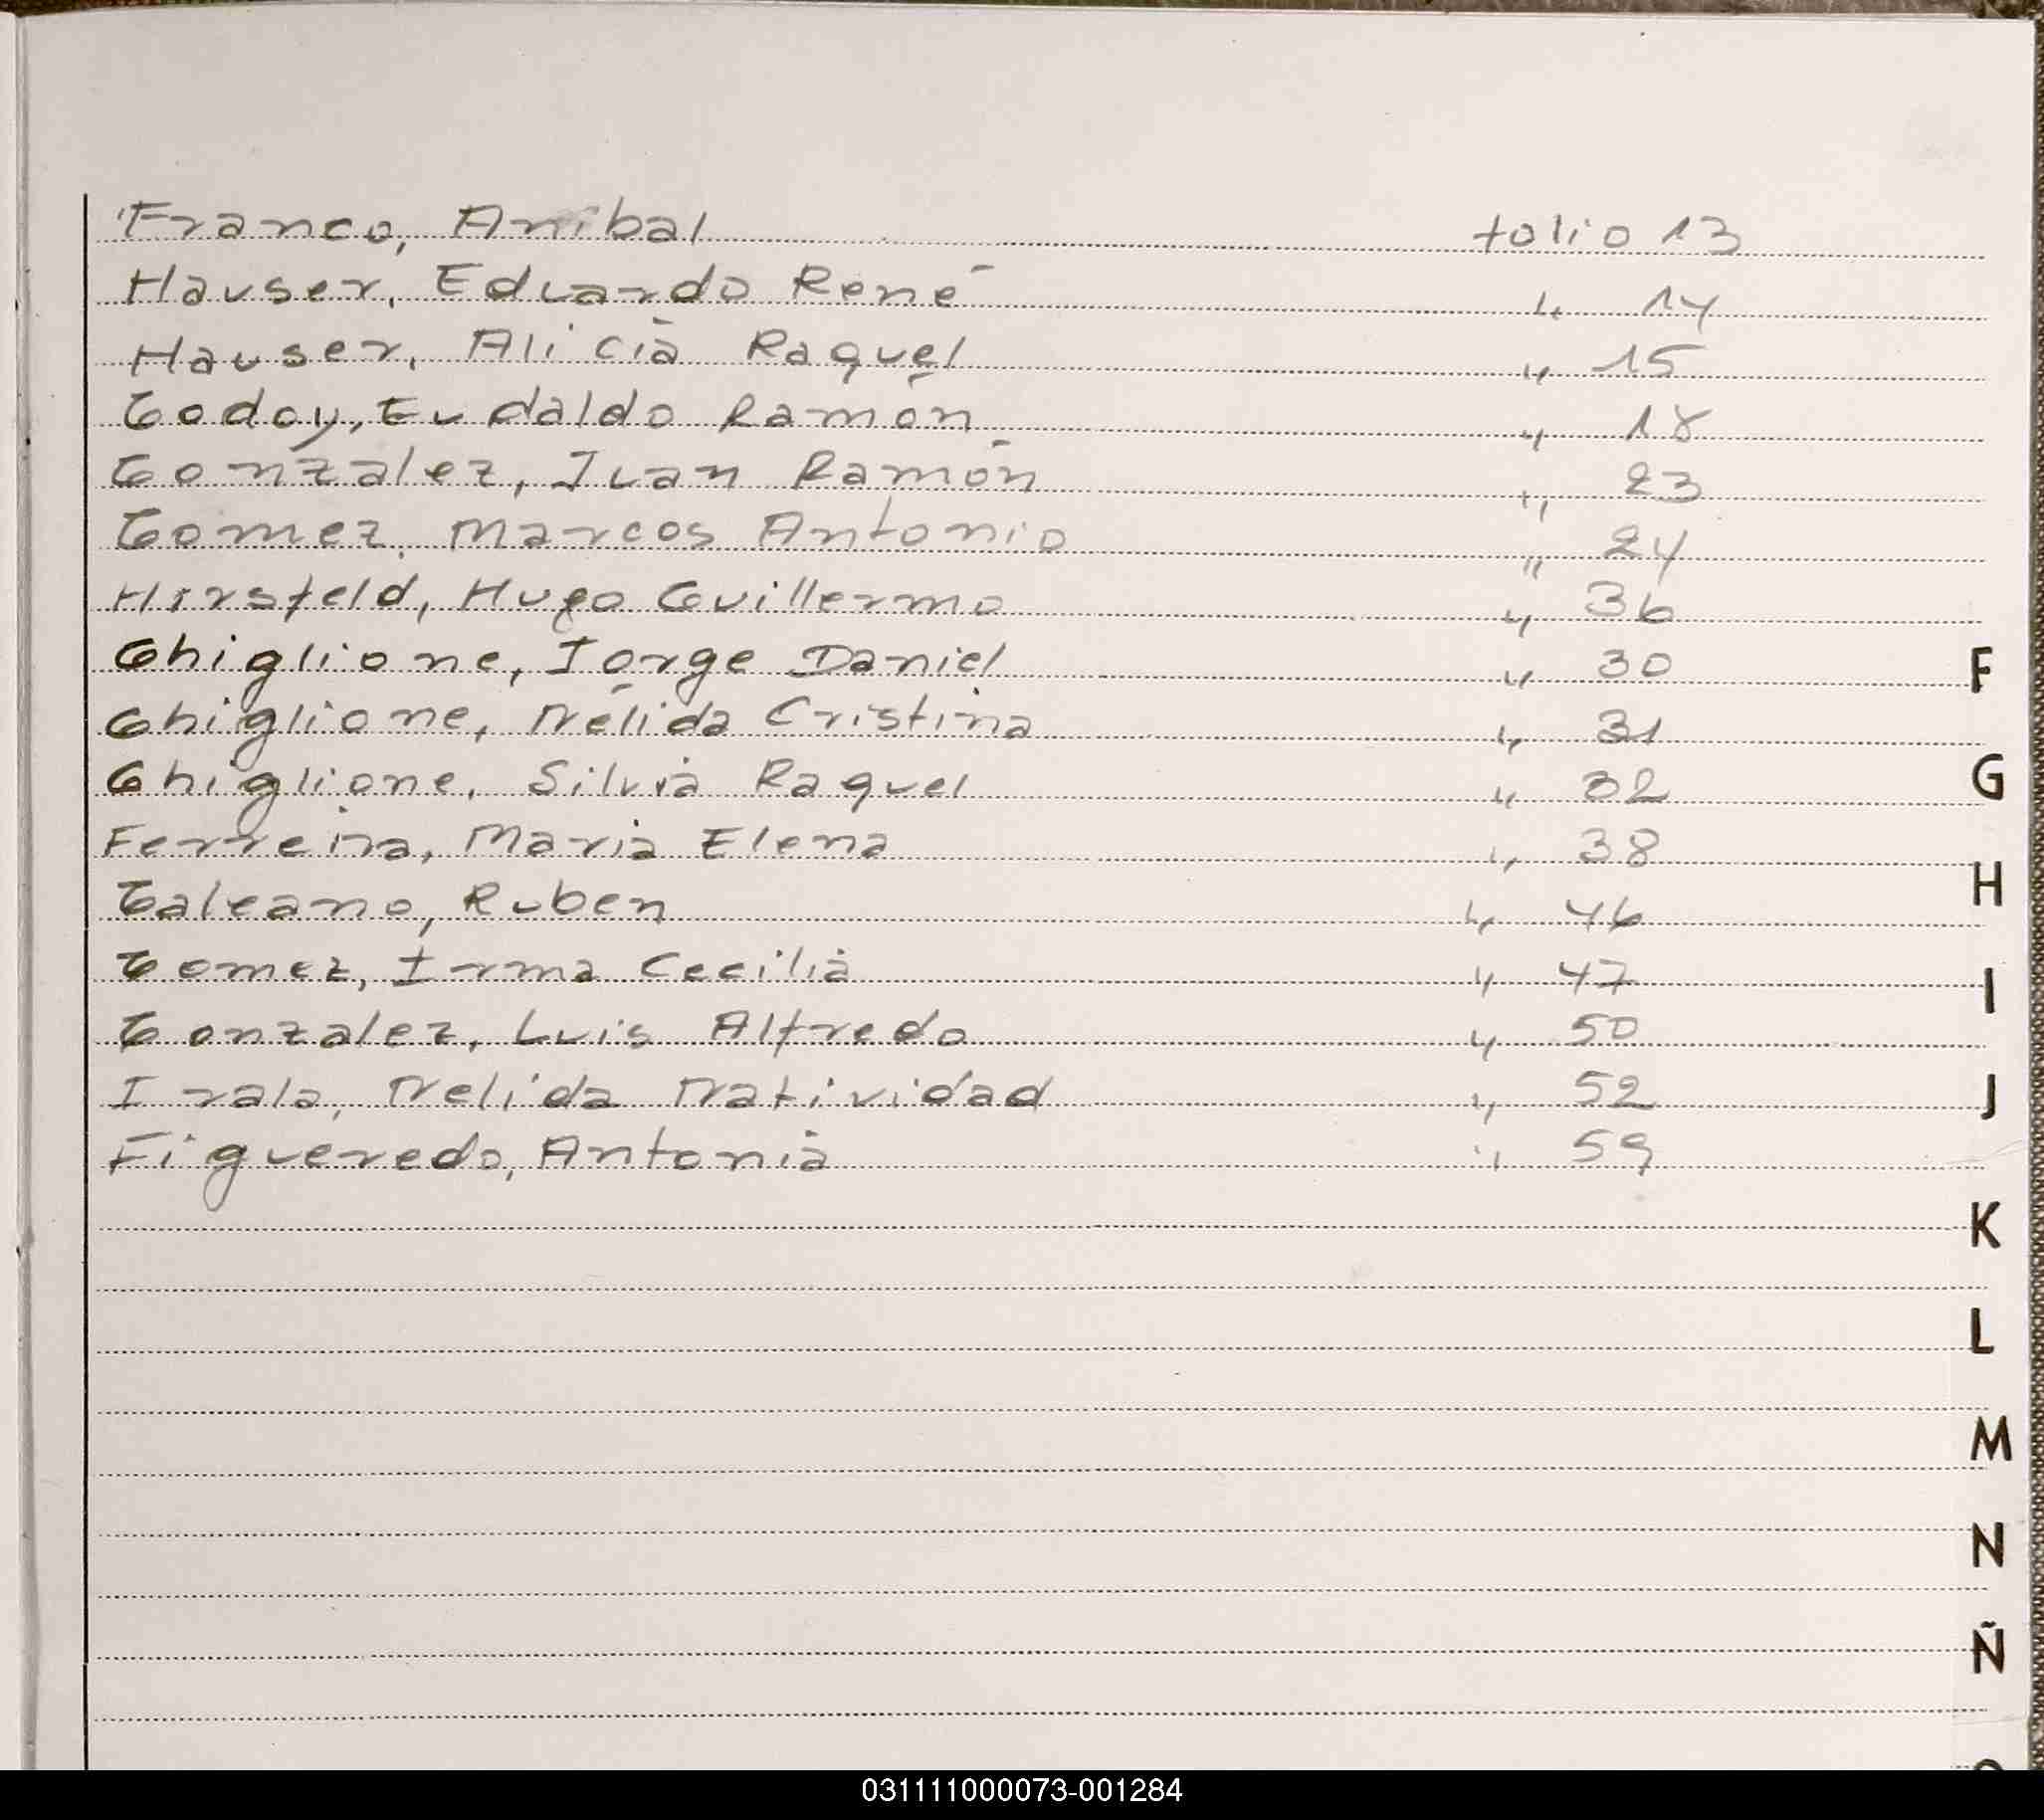 Franco, Anibal folio 13
Hauser, Eduardo René " 14
Hauser, Alicia Raquel " 15
Godoy, Eudaldo Ramón " 18
Gonzalez, Juan Ramón " 23
Gomez, Marcos Antonio " 24
Hirsfeld, Hugo Guillermo " 36
Ghiglione, Jorge Daniel " 30
Ghiglione, Nélida Cristina " 31
Ghiglione, Silvia Raquel " 32
Ferreira, Maria Elena " 38
Galeano, Ruben " 46
Gomez, Irma Cecilia " 47
Gonzalez, Luis Alfredo " 50
Irala, Nelida Natividad " 52
Figueredo, Antonia " 59
F
G
H
I
J
K
L
M
N
Ñ
031111000073-001284